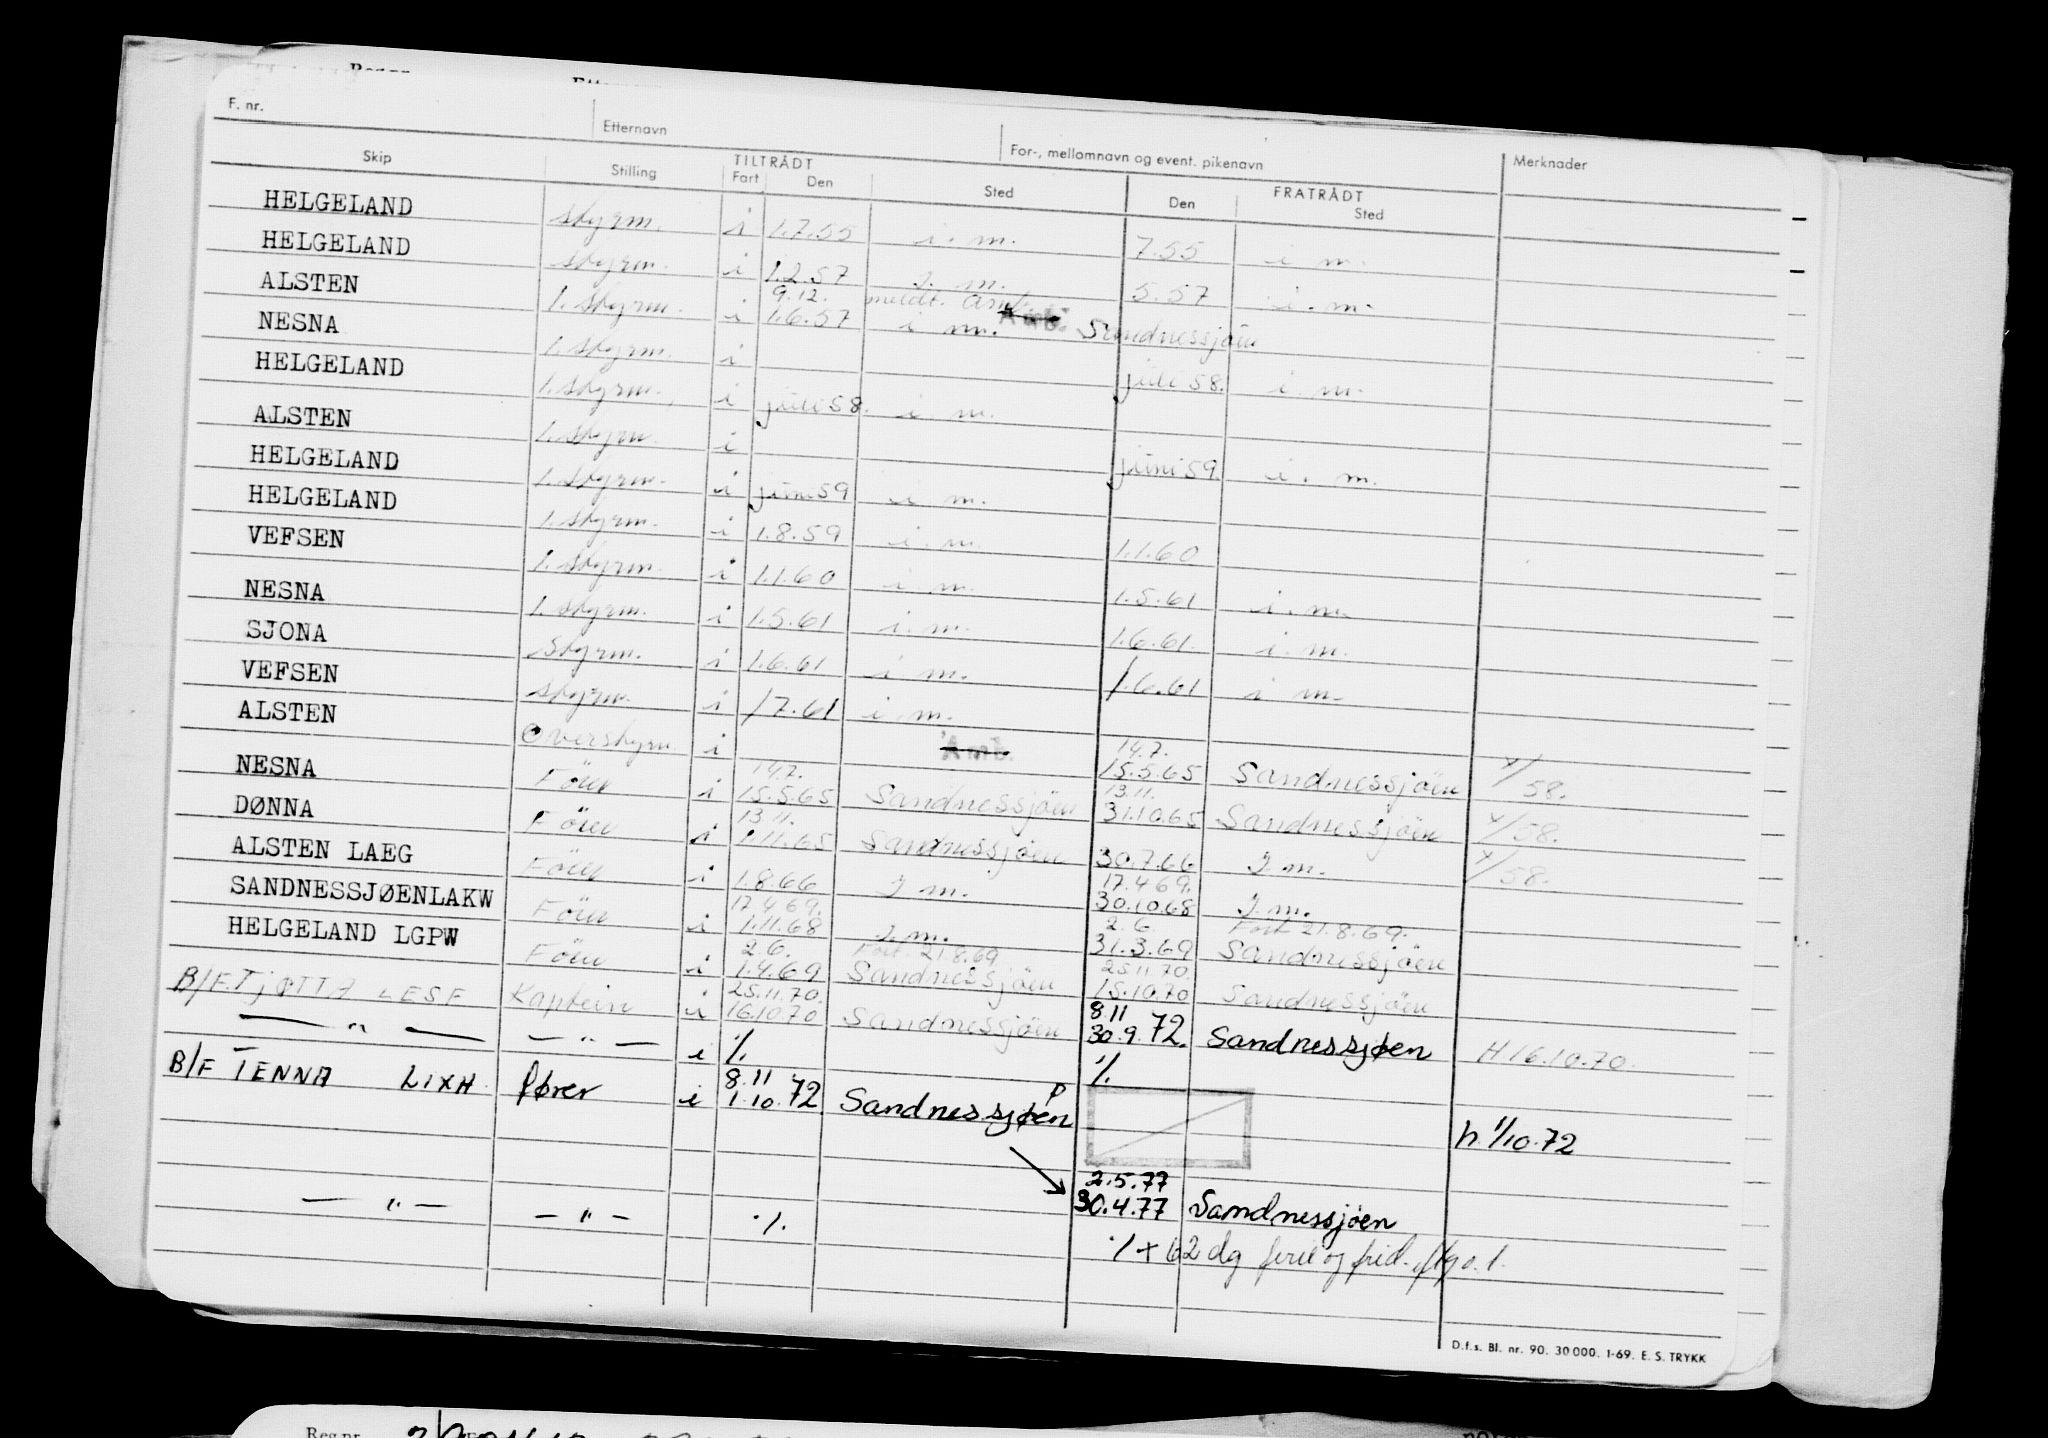 F. nr. Etternavn For-, mellomnavn og event. pikenavn Merknader
Skip Stilling TILTRÅDT FRATRÅDT
Fart Den Sted Den Sted
HELGELAND styrm. i 1.7.55 i. m. 7.55 i m.
HELGELAND styrm. i 1.2.57 i. m. 5.57 i. m.
ALSTEN 1. styrm. i 9.12. 1.6.57 meldt. i m. Sandnessjöen
NESNA 1. styrm. i juli 58. i. m.
HELGELAND 1. styrm. i juli 58. i. m.
ALSTEN 1. styrm. i juni 59. i. m.
HELGELAND 1. styrm. i juni 59 i m.
HELGELAND 1. styrm. i 1.8.59 i. m. 1.1.60
VEFSEN 1. styrm. i 1.1.60 i m. 1.5.61 i. m.
NESNA 1. styrm. i 1.5.61 i. m. 1.6.61. i. m.
SJONA Styrm. i 1.6.61 i m. /.6.61 i m.
VEFSEN styrm. i /7.61 i. m.
ALSTEN Overstyrm. i Amb. 14.7. 15.5.65 Sandnessjöen /58.
NESNA Förer i 14.7. 15.5.65 Sandnessjöen 13.11. 31.10.65 Sandnessjöen /58.
DØNNA Förer i 13.11. 1.11.65 Sandnessjöen 30.7.66 I m. /58.
ALSTEN LAEG Förer i 1.8.66 I m. 17.4.69. 30.10.68 I. m.
SANDNESSJØENLAKW Förer i 17.4.69. 1.11.68 I. m. 2.6. 31.3.69 Fort 21.8.69. Sandnessjöen
HELGELAND LGPW Förer i 2.6. 1.4.69 Fort. 21.8.69 Sandnessjöen 25.11.70. 15.10.70 Sandnessjöen
B/F. TJØTTA LESF Kaptein i 25.11.70. 16.10.70 Sandnessjöen 8.11 30.9.72. Sandnessjøen H 16.10.70.
— " — — " — i ./. ./.
B/F TENNA LIXH fører i 8.11 1.10.72 Sandnessjøen h. 1/10.72
2.5.77
30.4.77 Sandnessjöen
— " — — " — ./. ./. + 62 dg ferie og frid.
D.f.s. Bl. nr. 90. 30 000. 1-69. E. S. TRYKK
Reg.nr.